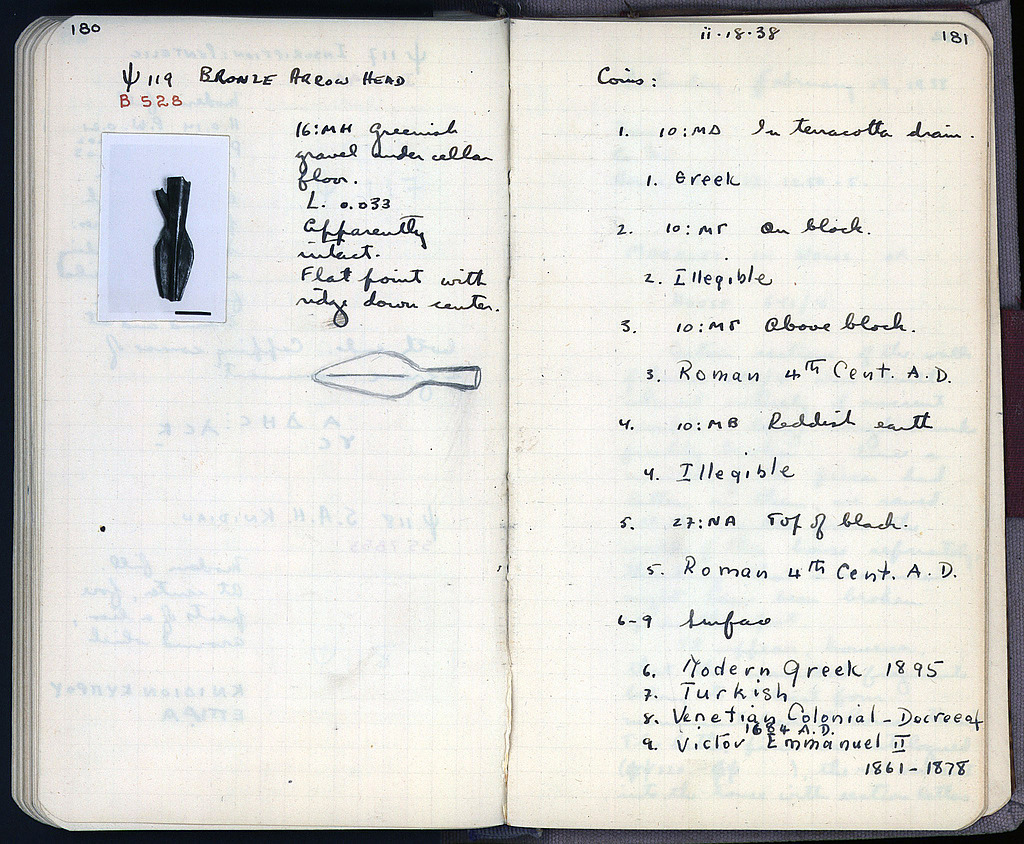 180
Ψ 119 BRONZE ARROW HEAD
B 528
16:MH Greenish
gravel under cellar
floor.
L. 0.033
Apparently
intact.
Flat point with
ridge down center.
ii-18-38
181
Coins:
1. 10:MD In terracotta drain.
1. Greek
2. 10:MS On block.
2. Illegible
3. 10:MS Above block.
3. Roman 4th Cent. A.D.
4. 10:MB Reddish earth
4. Illegible
5. 27:NA Top of block.
5. Roman 4th Cent. A.D.
6-9 Surface
6. Modern Greek 1895
7. Turkish
8. Venetian Colonial -
1684 A.D.
9. Victor Emmanuel II
1861-1878